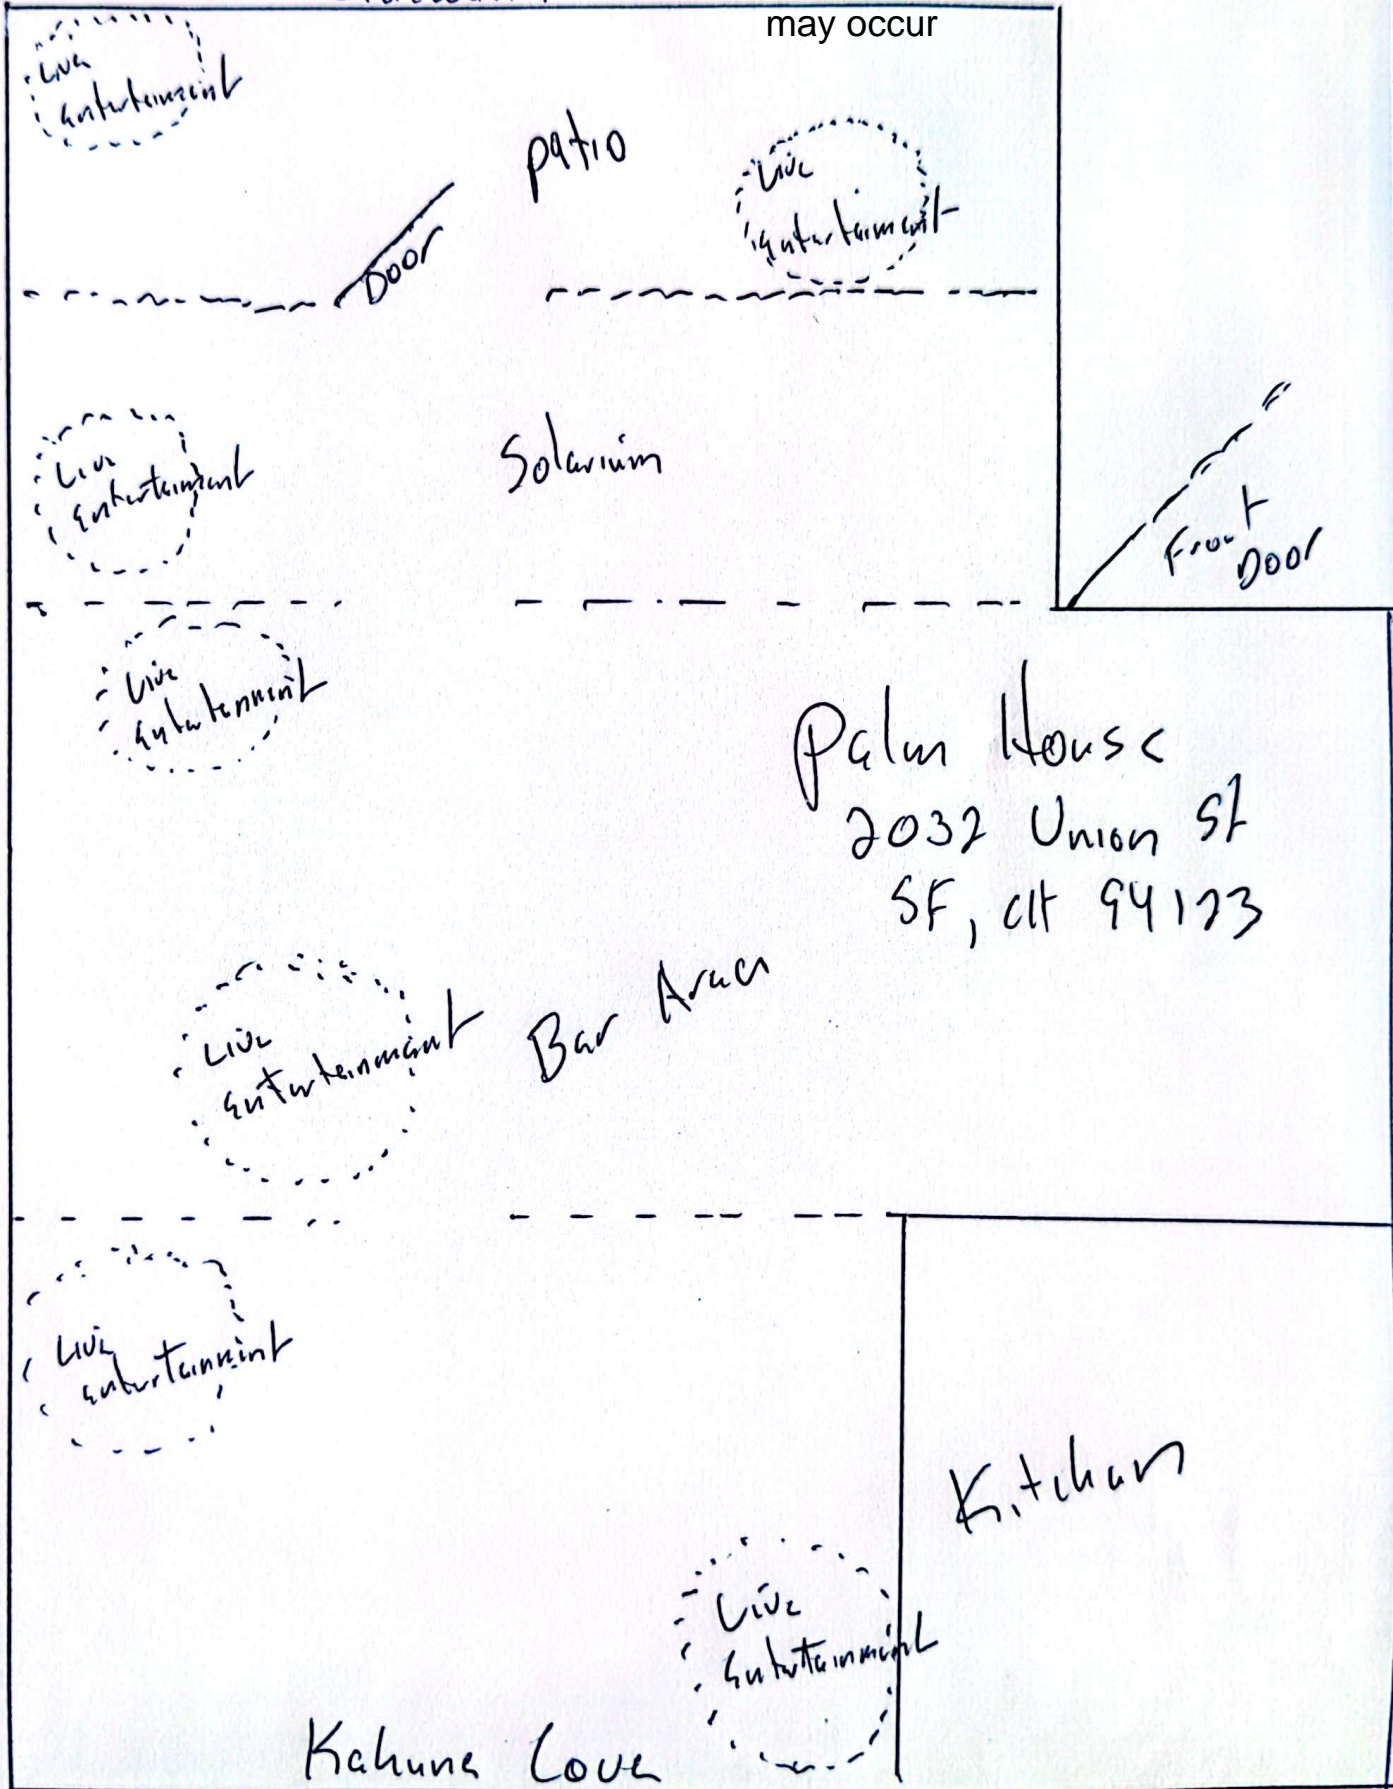 may occur
Live
Entertainment
patio
Live
Entertainment
Door
Live
Entertainment
Solarium
Front
Door
Live
Entertainment
Palm House
2032 Union St
SF, CA 94123
Live
Entertainment
Bar Area
Live
Entertainment
Kitchen
Live
Entertainment
Kahuna Cove